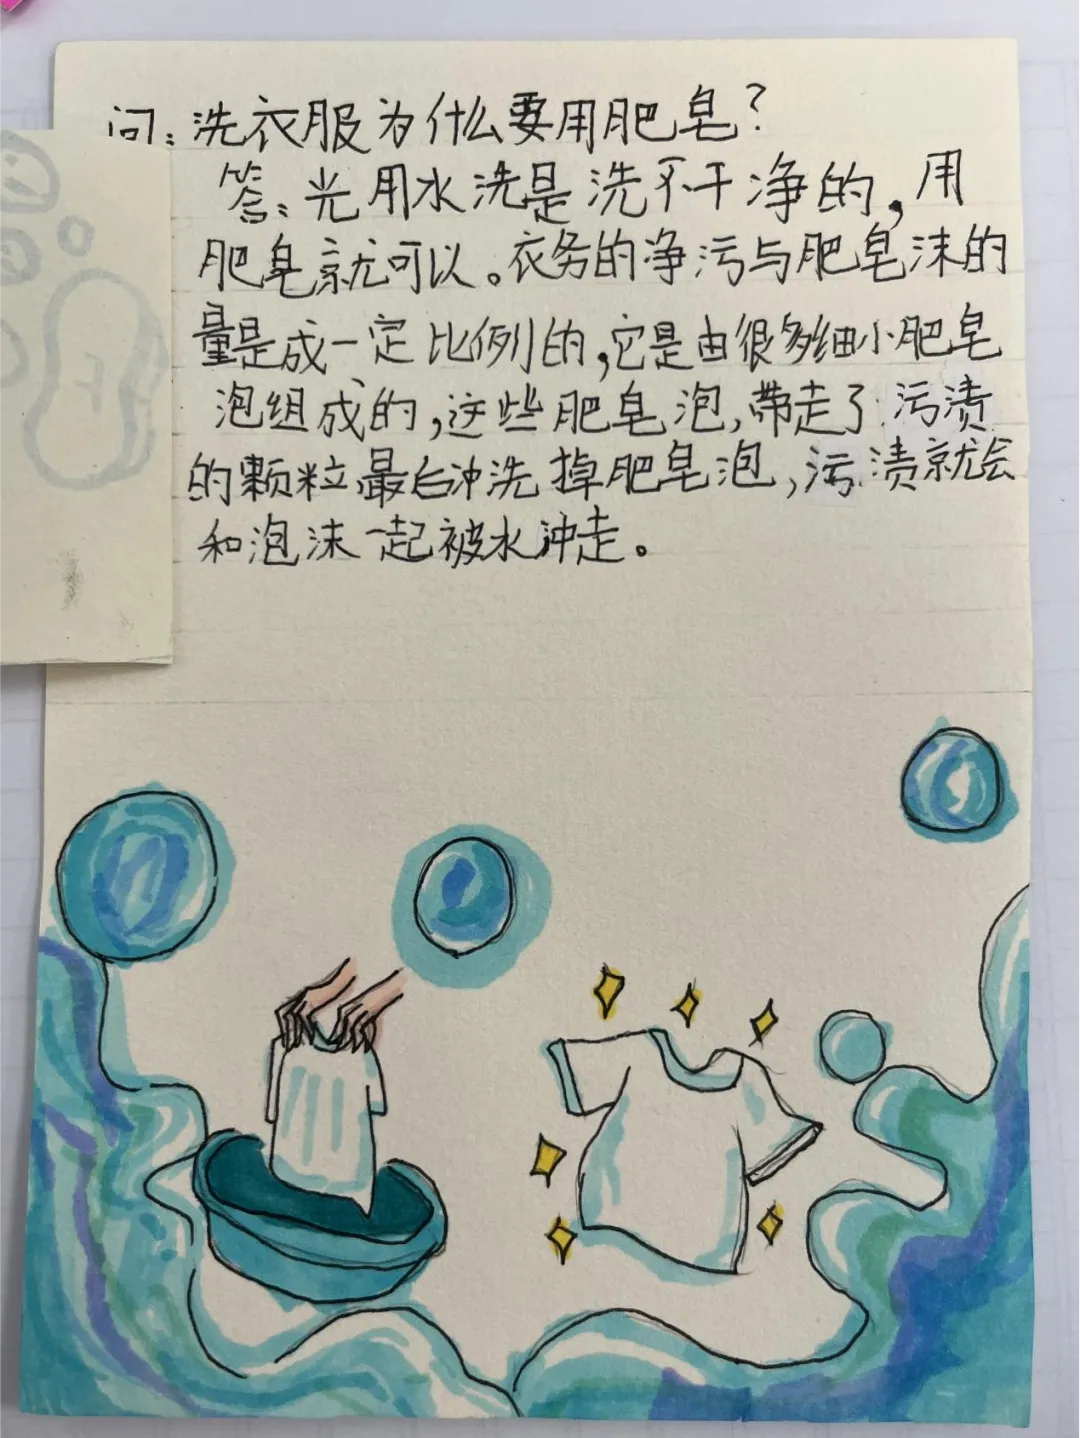 问:洗衣服为什么要用肥皂?
答:光用水洗是洗不干净的,用
肥皂就可以。衣务的净污与肥皂沫的
量是成一定比例的,它是由很多细小肥皂
泡组成的,这些肥皂泡,带走了污渍
的颗粒,最后冲洗掉肥皂泡,污渍就会
和泡沫一起被水冲走。